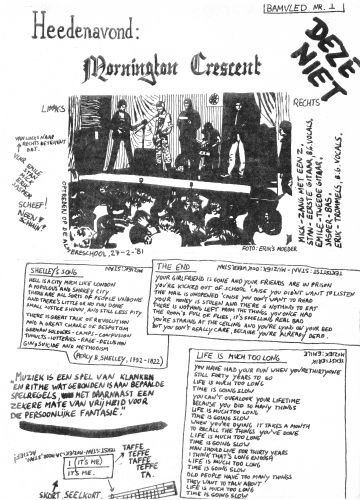 BAMVLED NR. 1
Heedenavond:
DEZE
NIET
Mornington Crescent
LINKS
RECHTS
VAN LINKS NAAR
RECHTS BETEKENT
DAT:
VOOR
EMILE
STAN
MICK
ERIK
JASPER
SCHEEF!
OPTREDEN OP DE
EBRESCHOOL, 27-2-'81
FOTO: ERIK'S MOEDER
MICK - ZANG MET EEN Z,
STANLEY - EERSTE GITAAR, B.G. VOCALS,
EMILE - TWEEDE GITAAR,
JASPER - BAS,
ERIK - TROMMELS, B.G. VOCALS,
SHELLEY'S SONG
MUZIEK: STAN
HELL IS A CITY MUCH LIKE LONDON
A POPULOUS AND SMOKEY CITY
THERE ARE ALL SORTS OF PEOPLE UNDONE
AND THERE'S LITTLE OR NO FUN DONE
SMALL JUSTICE SHOWN, AND STILL LESS PITY
THERE IS GREAT TALK OF REVOLUTION
AND A GREAT CHANCE OF DESPOTISM
GERMAN SOLDIERS - CAMPS - CONFUSION
TUMULTS - LOTTERIES - RAGE - DELUSION
GIN, SUICIDE AND METHODISM
(PERCY B. SHELLEY, 1792-1822)
THE END
TEKST: STAN - MUZIEK:
YOUR GIRLFRIEND IS GONE AND YOUR FRIENDS ARE IN PRISON
YOU'RE KICKED OUT OF SCHOOL 'CAUSE YOU DIDN'T WANT TO LISTEN
THE MAIL IS UNOPENED 'CAUSE YOU DON'T WANT TO READ
YOUR MONEY IS STOLEN AND THERE IS NOTHING TO EAT
THERE IS NO FOOD LEFT FROM THE THINGS YOU ONCE HAD
THE ROOM'S FULL OF FLIES, IT'S SMELLING REAL BAD
YOU'RE STARING AT THE CEILING AND YOU'RE LYING ON YOUR BED
BUT YOU DON'T REALLY CARE, BECAUSE YOU'RE ALREADY DEAD.
"MUZIEK IS EEN SPEL VAN KLANKEN
EN RITME WAT GEBONDEN IS AAN BEPAALDE
SPELREGELS, MET DAARNAAST EEN
ZEKERE MATE VAN VRIJHEID VOOR
DE PERSOONLIJKE FANTASIE."
LIFE IS MUCH TOO LONG
YOU HAVE HAD YOUR FUN WHEN YOU'RE THIRTYONE
STILL FORTY YEARS TO GO
LIFE IS MUCH TOO LONG
TIME IS GOING SLOW
YOU CAN'T OVERLOOK YOUR LIFETIME
BECAUSE YOU DID SO MANY THINGS
LIFE IS MUCH TOO LONG
TIME IS GOING SLOW
WHEN YOU'RE DYING IT TAKES A MONTH
TO RECALL THE THINGS YOU'VE DONE
LIFE IS MUCH TOO LONG
TIME IS GOING SLOW
MAN SHOULD LIVE FOR THIRTY YEARS
I THINK THAT'S LONG ENOUGH
LIFE IS MUCH TOO LONG
TIME IS GOING SLOW
OLD PEOPLE HAVE TOO MANY THINGS
THEY WANT TO TALK ABOUT
LIFE IS MUCH TOO LONG
TIME IS GOING SLOW
(IT'S ME)
IT'S ME.
TAFFE
TEFFE
TAFFE
TEFFE
TA.
SKORT SEELKORT.